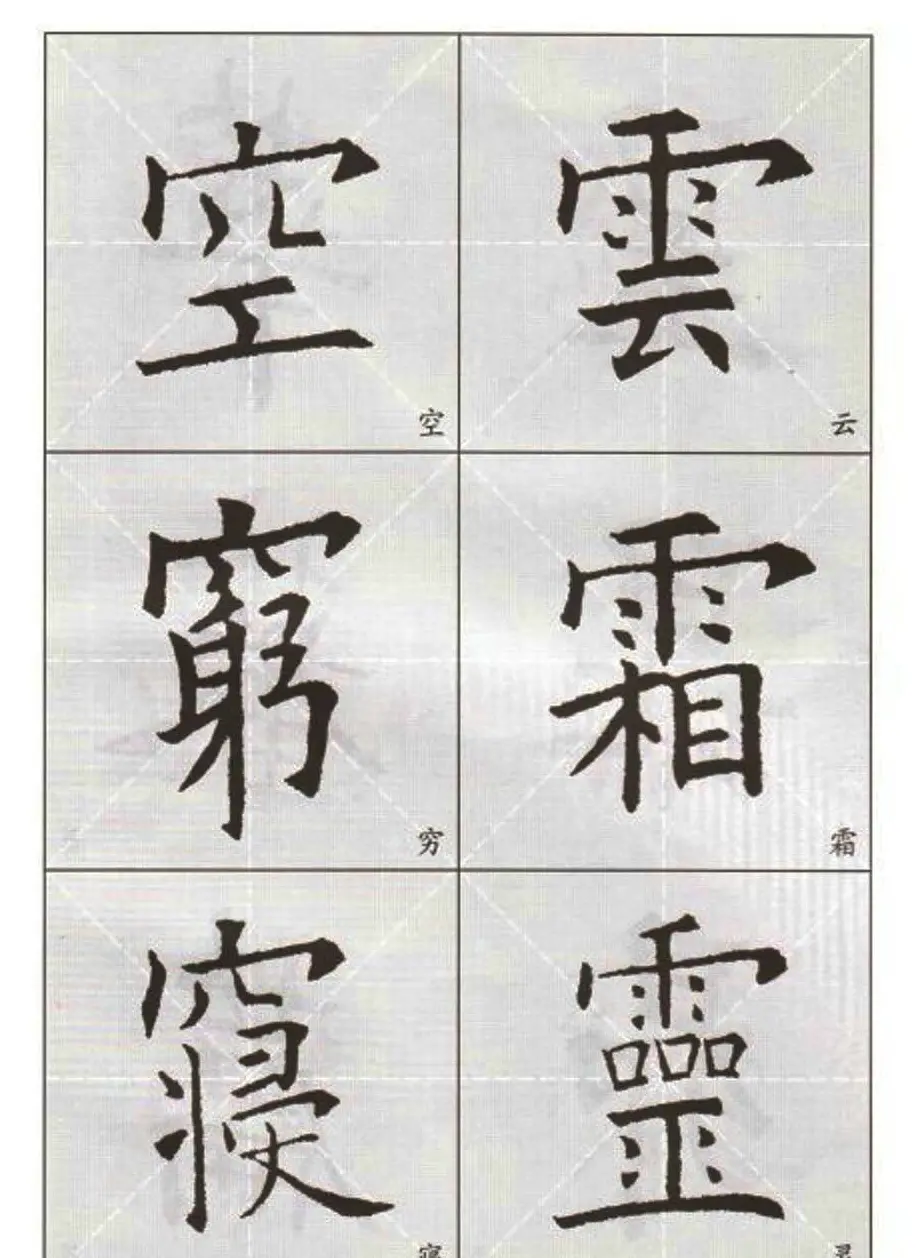 空
空
雲
云
窮
穷
霜
霜
寢
靈